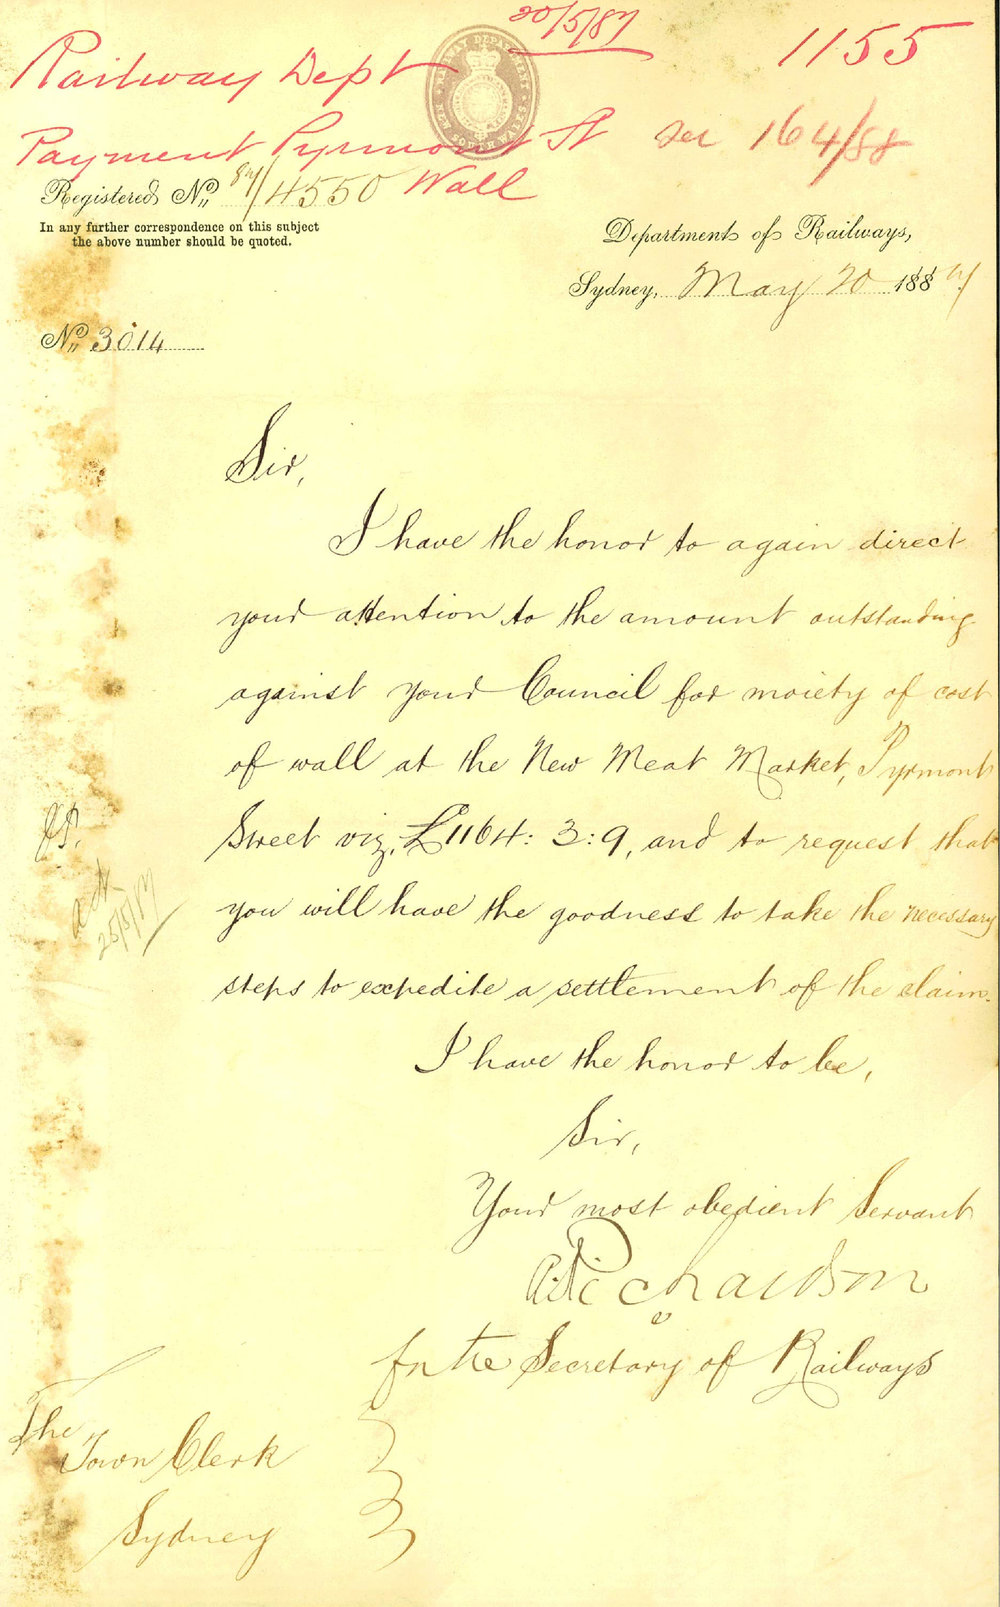 20/5/87
1155
Railway Dept
RAILWAY DEPARTMENT
NEW SOUTH WALES
Payment Pyrmont St
Wall
see 164/88
Registered No. 87/4550
In any further correspondence on this subject
the above number should be quoted.
Department of Railways,
Sydney, May 20 1887
No. 3014
Sir,
I have the honor to again direct
your attention to the amount outstanding
against your Council for moiety of cost
of wall at the New Meat Market, Pyrmont
Street viz. £1164: 3: 9, and to request that
you will have the goodness to take the necessary
steps to expedite a settlement of the claim.
25/5/87
I have the honor to be,
Sir,
Your most obedient Servant
Richardson
for the Secretary of Railways
The
Town Clerk
Sydney